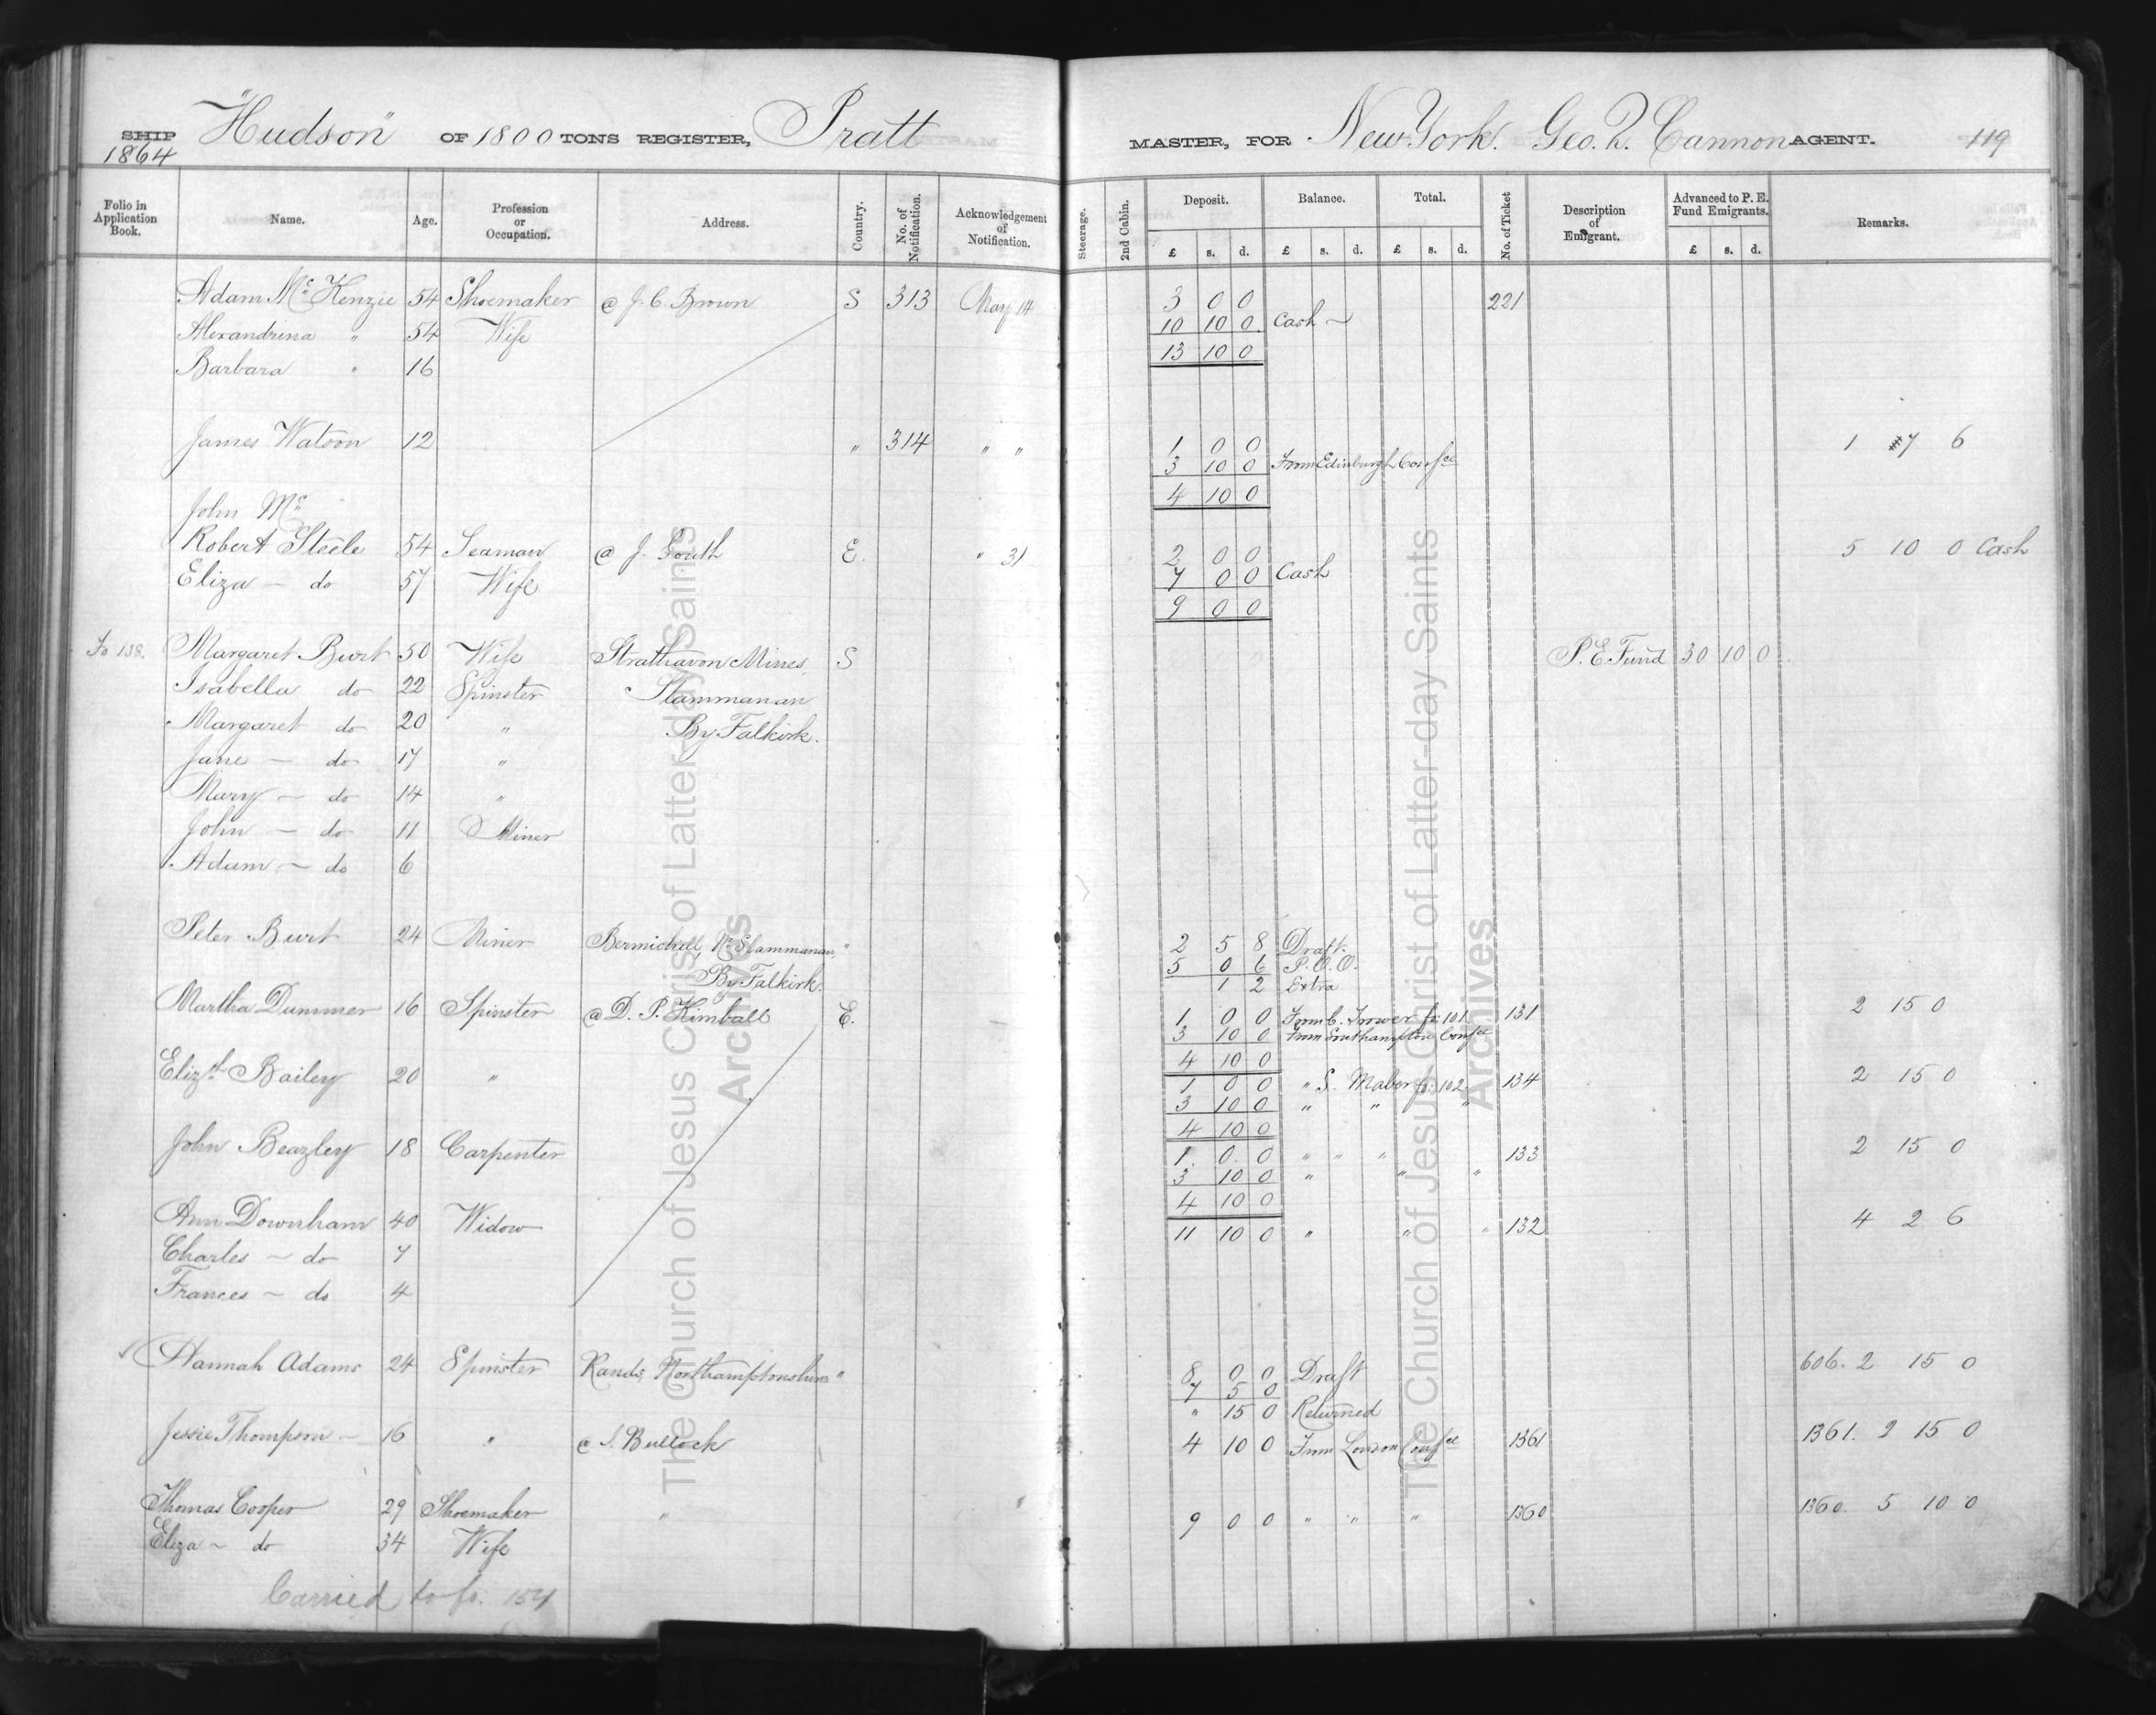 SHIP "Hudson" OF 1800 TONS REGISTER, Pratt MASTER, FOR New York. Geo. Q. Cannon AGENT. 119
1864
Folio in Application Book. Name. Age. Profession or Occupation. Address. Country. No. of Notification. Acknowledgement of Notification. Steerage. 2nd Cabin. Deposit. Balance. Total. No. of Ticket Description of Emigrant. Advanced to P. E. Fund Emigrants. Remarks.
£ s. d. £ s. d. £ s. d. £ s. d.
Adam McKenzie 54 Shoemaker @ J. C. Brown S 313 May 14 3 0 0 221
Alexandrina " 54 Wife 10 10 0 Cash
Barbara " 16 13 10 0
James Watson 12 " 314 " " 1 0 0 1 7 6
3 10 0 From Edinburgh Confce
4 10 0
John Mc
Robert Steele 54 Seaman @ J. South E. " 31 2 0 0 5 10 0 Cash
Eliza - do 57 Wife 7 0 0 Cash
9 0 0
Fo 138. Margaret Burt 50 Wife Strathavon Mines, S P. E. Fund 30 10 0
Isabella do 22 Spinster Slammanan
Margaret do 20 " By Falkirk.
Jane - do 17 "
Mary - do 14 "
John - do 11 Miner
Adam - do 6
Peter Burt 24 Miner Bermichell, Nr Slammanan " 2 5 8 Draft.
By Falkirk. 5 0 6 P.O.O.
1 2 Extra
Martha Dummer 16 Spinster @ D. P. Kimball E. 1 0 0 From C. Trower fo 101 131 2 15 0
3 10 0 From Southampton Confce
4 10 0
Elizth Bailey 20 " 1 0 0 " S. Maber fo. 102 134 2 15 0
3 10 0 " " "
4 10 0
John Beazley 18 Carpenter 1 0 0 " " " 133 2 15 0
3 10 0 " " "
4 10 0
Ann Downham 40 Widow 11 10 0 " " " 132 4 2 6
Charles - do 7
Frances - do 4
Hannah Adams 24 Spinster Rands, Northamptonshire " 8 0 0 Draft 606. 2 15 0
7 5 0
" 15 0 Returned
Jessie Thompson - 16 " @ J. Bullock 4 10 0 From London Confce 1361 1361. 2 15 0
Thomas Cooper 29 Shoemaker " 9 0 0 " " " 1360 1360. 5 10 0
Eliza - do 34 Wife
Carried to fo. 157
The Church of Jesus Christ of Latter-day Saints
Archives
The Church of Jesus Christ of Latter-day Saints
Archives